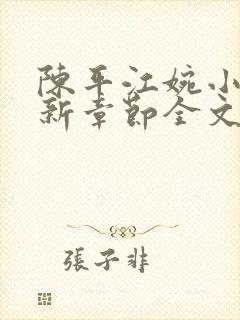 陳平江婉小
新章節全文
張子非